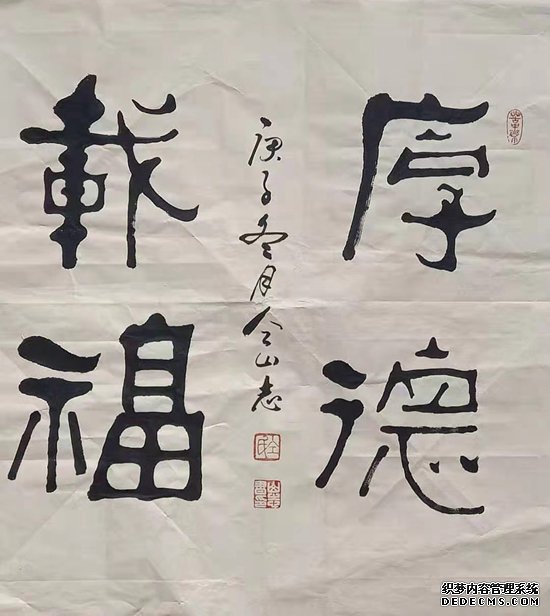 厚德
載福
庚子冬月仝山志
织梦内容管理系统
DEDECMS.COM